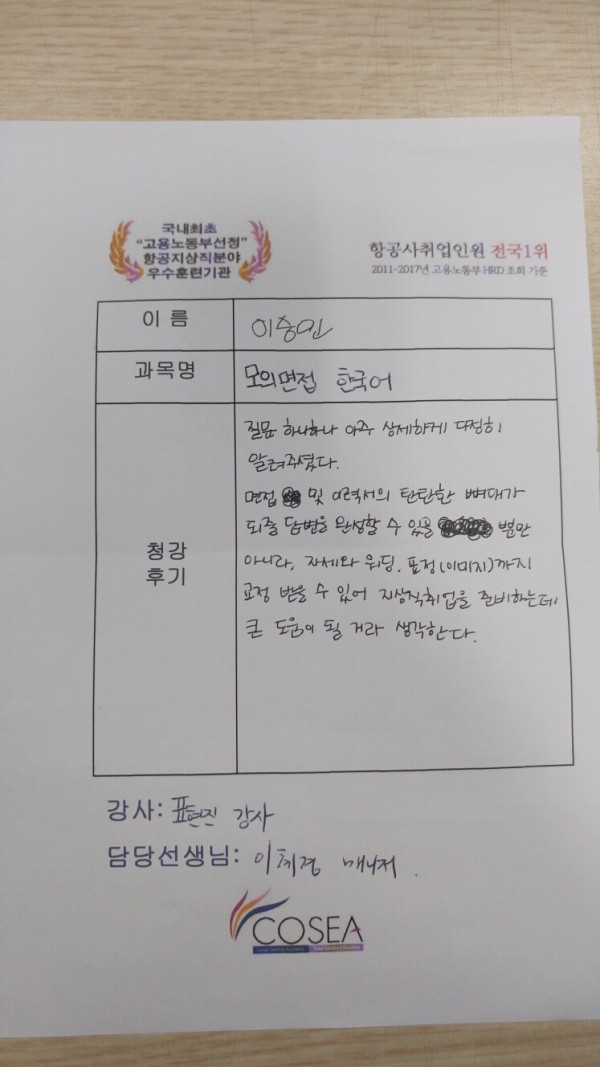 국내최초
"고용노동부선정"
항공지상직분야
우수훈련기관
항공사취업인원 전국1위
2011-2017년 고용노동부 HRD 조회 기준
이 름
이승민
과목명
모의면접 한국어
청강
후기
질문 하나하나 아주 상세하게 다정히
알려주셨다.
면접 및 이력서의 탄탄한 뼈대가
되줄 답변을 완성할 수 있을 뿐만
아니라, 자세와 워딩, 표정(이미지)까지
교정 받을 수 있어 지상직취업을 준비하는데
큰 도움이 될 거라 생각한다.
강사: 표현진 강사
담당선생님: 이혜경 매니저.
COSEA